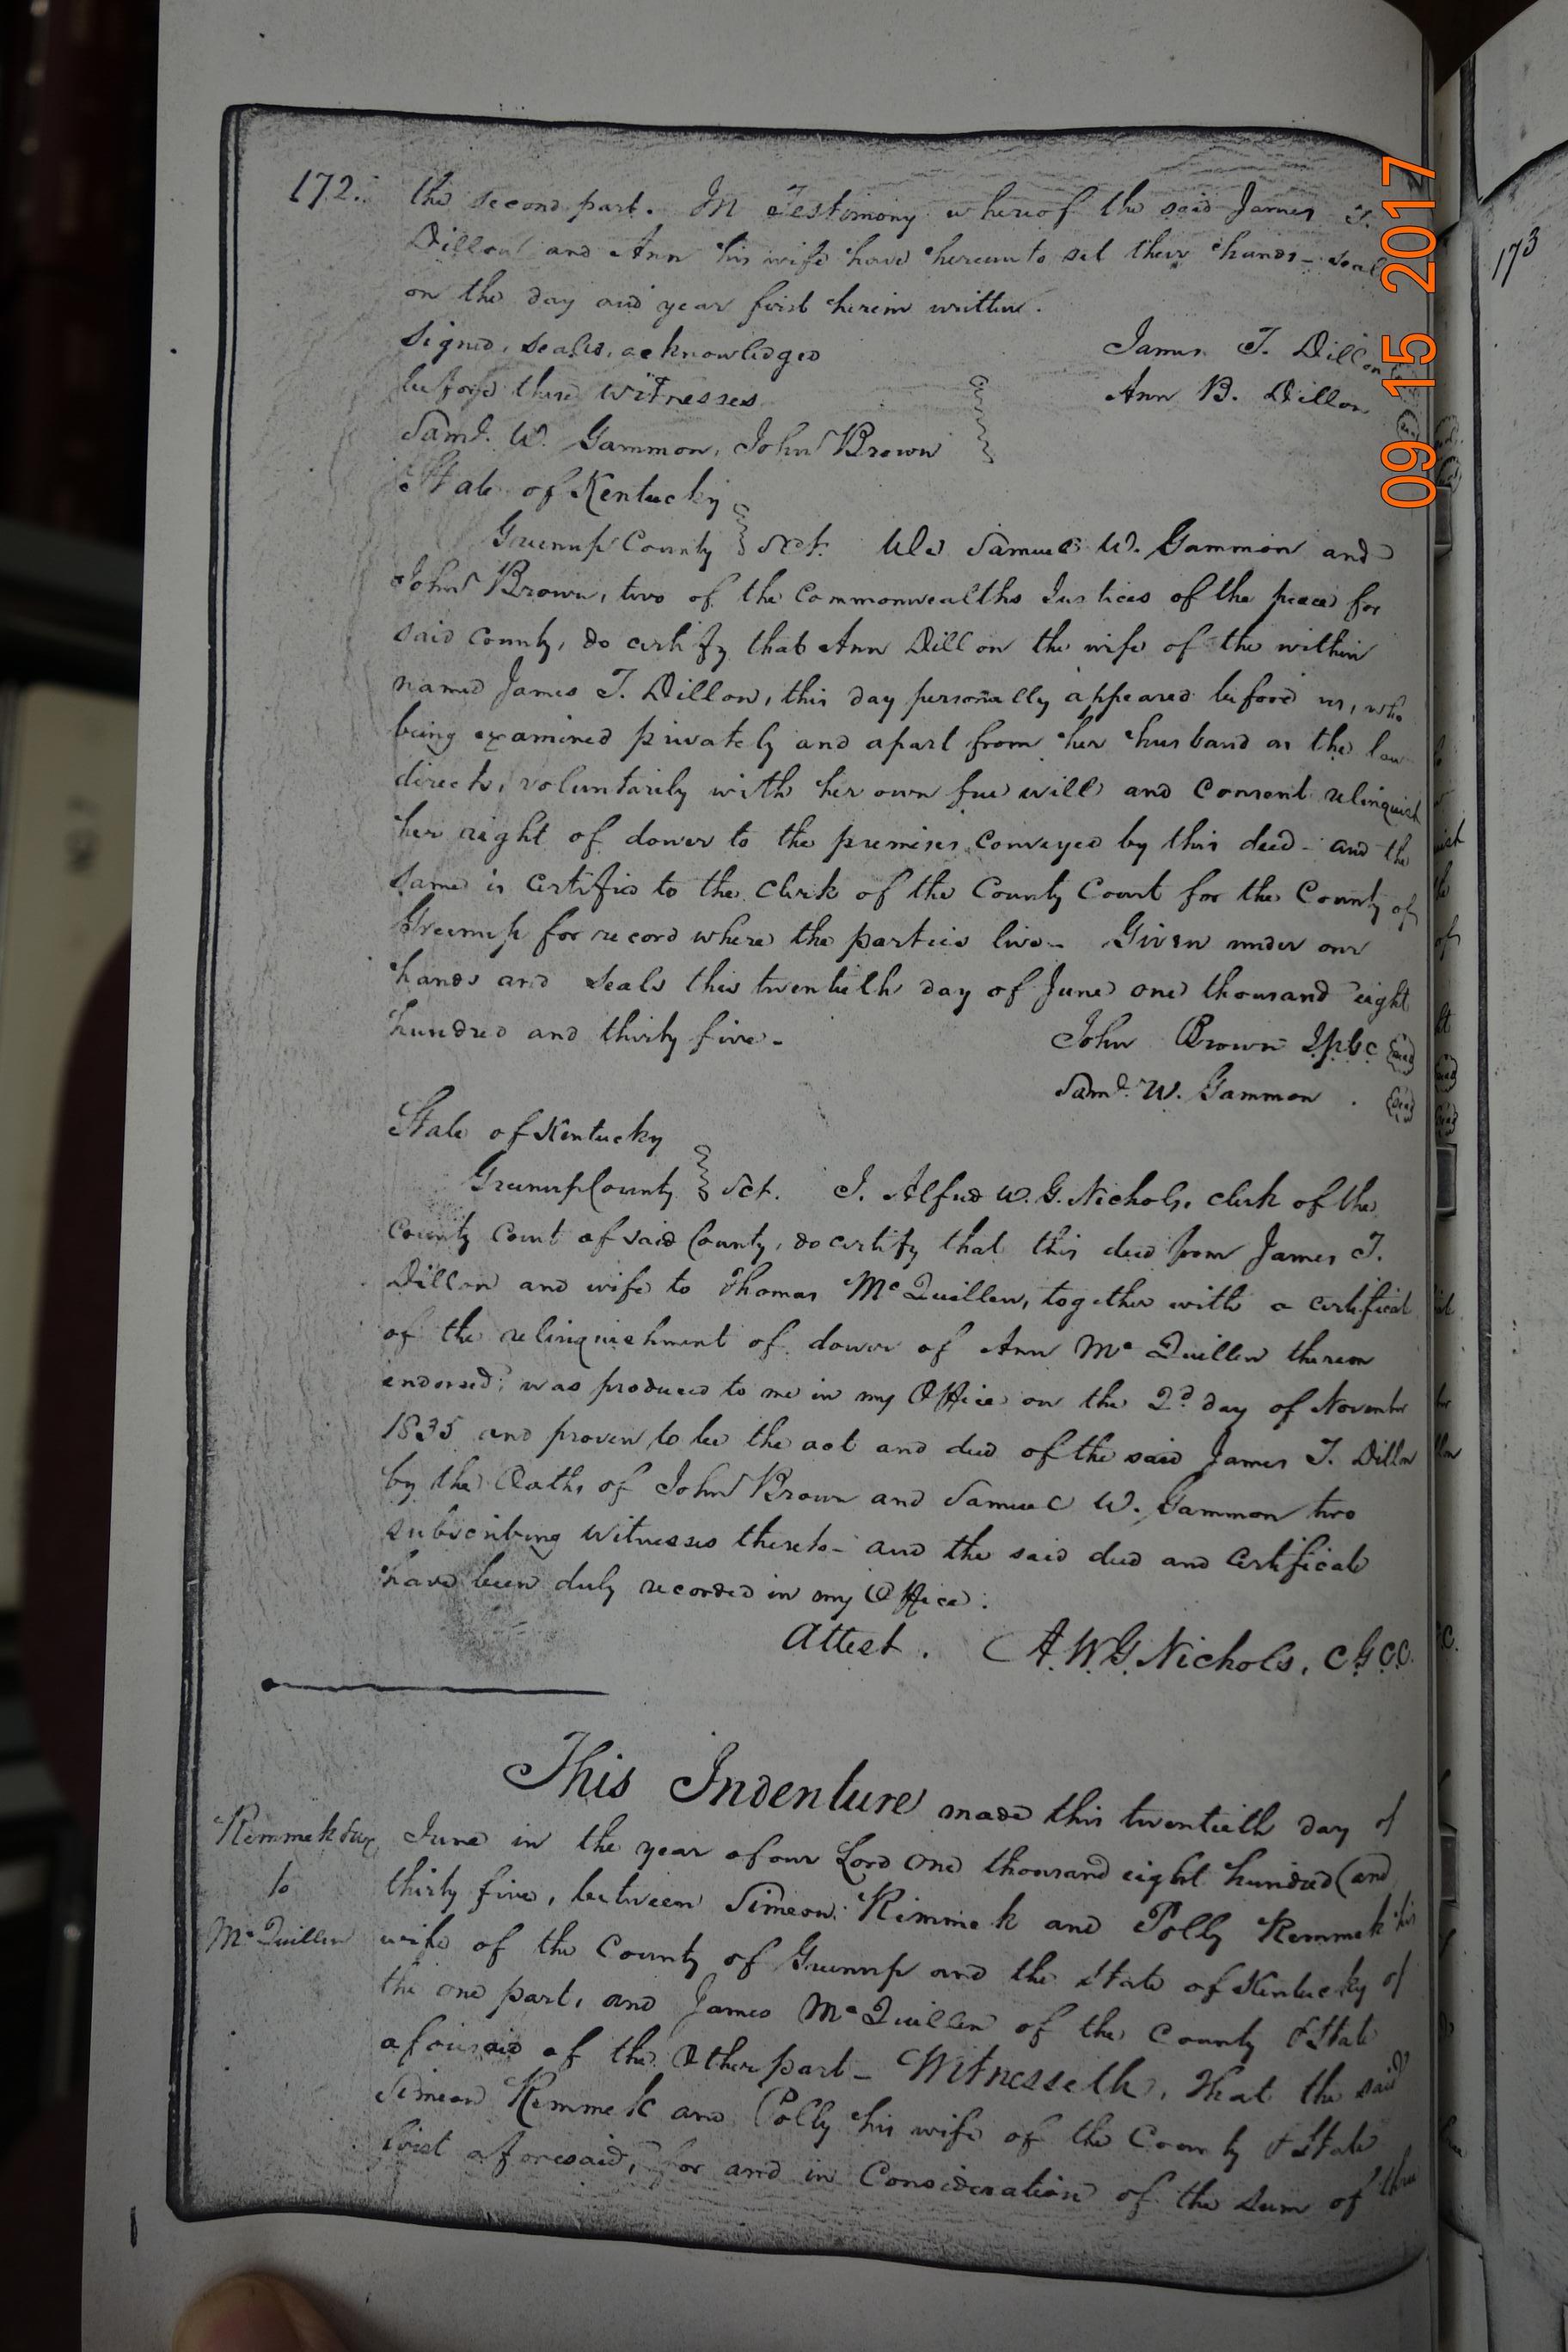 172. the second part. In Testimony whereof the said James T.
Dillon and Ann his wife have hereunto set their hands - seal
on the day and year first herein written.
Signed, sealed, acknowledged
before these witnesses
Saml. W. Gammon, John Brown
James T. Dillon
Ann B. Dillon
State of Kentucky
Greenup County Sct. We Samuel W. Gammon and
John Brown, two of the Commonwealths Justices of the peace for
said County, do certify that Ann Dillon the wife of the within
named James T. Dillon, this day personally appeared before us, who
being examined privately and apart from her husband as the law
directs, voluntarily with her own free will and Consent relinquish
her right of dower to the premises conveyed by this deed - and the
same is certified to the Clerk of the County Court for the County of
Greenup for record where the parties live - Given under our
hands and seals this twentieth day of June one thousand eight
hundred and thirty five -
John Brown Jpbc seal
Saml. W. Gammon . seal
State of Kentucky
Greenup County Sct. I. Alfred W. G. Nichols, clerk of the
County Court of said County, do certify that this deed from James T.
Dillon and wife to Thomas McQuillen, together with a certificat
of the relinquishment of dower of Ann McQuillen thereon
endorsed; was produced to me in my Office on the 2d day of November
1835 and proven to be the act and deed of the said James T. Dillon
by the Oaths of John Brown and Samuel W. Gammon two
subscribing witnesses thereto - and the said deed and Certificate
have been duly recorded in my Office.
Attest. A. W. G. Nichols, C.G.C.C.
This Indenture made this twentieth day of
June in the year of our Lord one thousand eight hundred and
thirty five, between Simeon Kimmek and Polly Kemmek his
wife of the County of Greenup and the State of Kentucky of
the one part, and James McQuillen of the County & State
aforesaid of the Other part - Witnesseth, That the said
Simeon Kemmek and Polly his wife of the County & State
first aforesaid, for and in Consideration of the sum of three
Kemmek & ux
to
McQuillen
173
09 15 2017